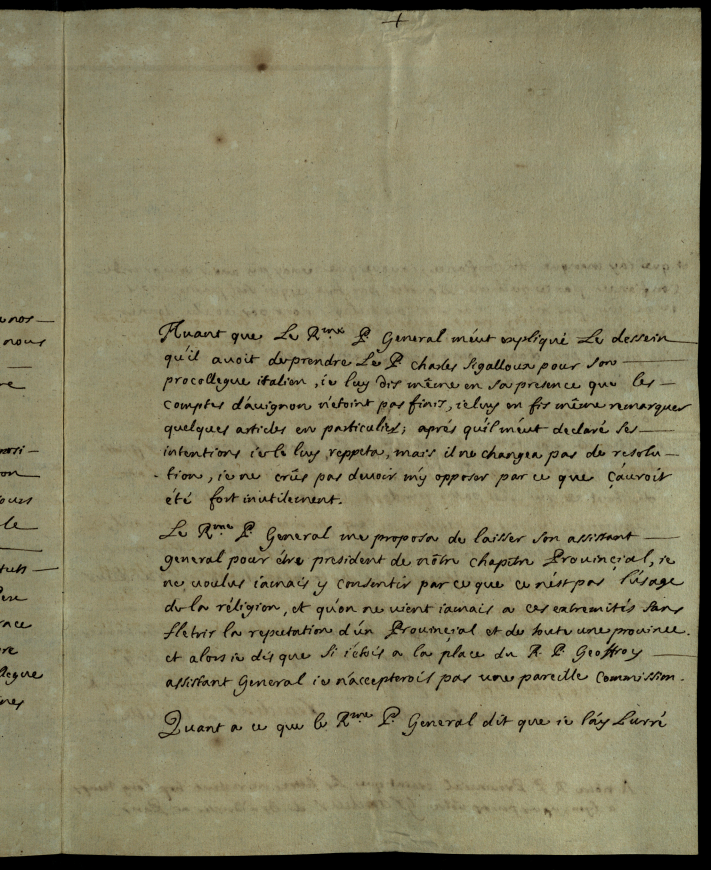 Auant que Le R.me P. General m'eut expliqué Le dessein
qu'il auoit de prendre Le P. charles Sigalloux pour son
procollegue italien, ie luy dis même en sa presence que les
comptes d'auignon n'etoint pas finis, ie luy en fis même remarquer
quelques articles en particulier; aprés qu'il m'eut declaré ses
intentions ie le luy reppeta, mais il ne changea pas de resolu-
tion, ie ne crûs pas deuoir m'y opposer par ce que ç'auroit
été fort inutilement.
Le R.me P. General me proposa de laisser son assistant
general pour étre president de nôtre chapitre Prouinçial, ie
ne voulus iamais y consentir par ce que ce n'ést pas l'úsage
de la réligion, et qu'on ne uient iamais a ces extremités sans
flétrir la reputation d'ún Prouinçial et de toute une prouince.
et alors ie dis que si i'etois a la place du R. P. Geoffroy
assistant General ie n'accepterois pas une pareille Commission.
Quant a ce que le R.me P. General dit que ie l'áy Liuré
a nos
nous
re
on
le
tuts
Pere
race
bre
llegue